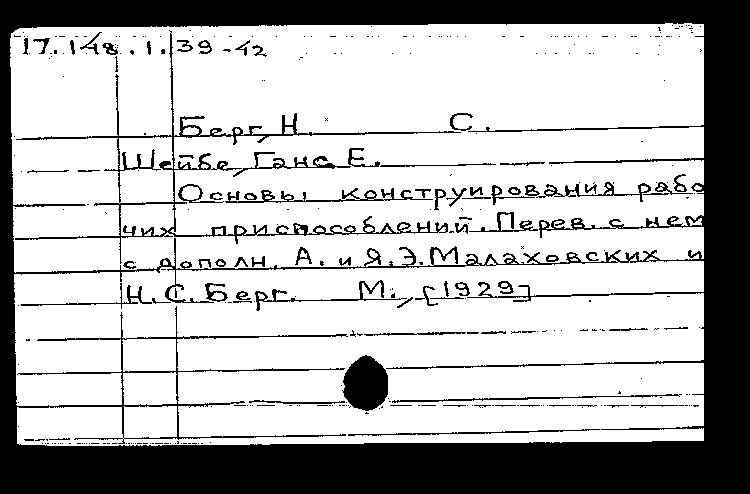 17.148.1.39-42
Берг, Н. С.
Шейбе, Ганс Е.
Основы конструирования рабо
чих приспособлений. Перев. с нем
с дополн. А. и Я.Э. Малаховских и
Н.С. Берг. М., [1929]